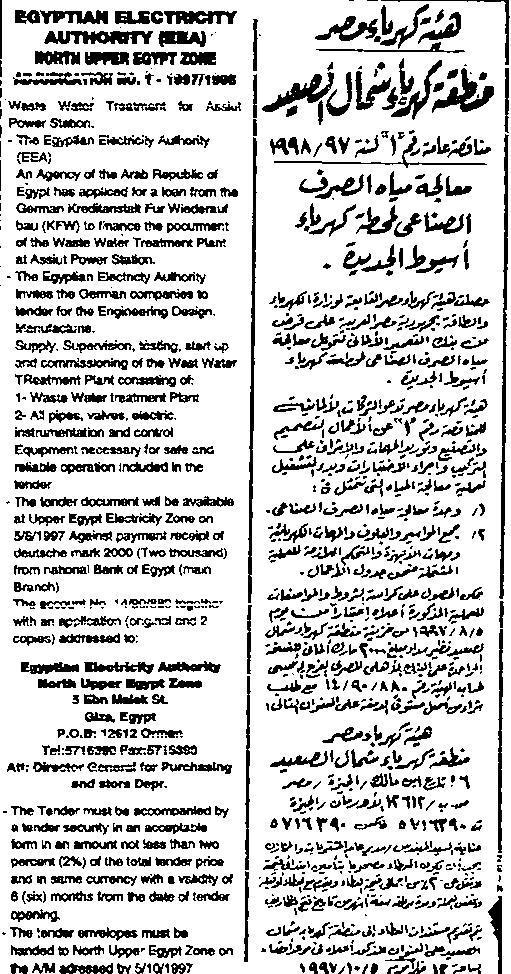 EGYPTIAN ELECTRICITY
AUTHORITY (EEA)
NORTH UPPER EGYPT ZONE
NO. 1 - 1997/1998
Waste Water Treatment for Assiut
Power Station.
- The Egyptian Electricity Authority
(EEA)
An Agency of the Arab Republic of
Egypt has appliced for a loan from the
German Kreditanstalt Fur Wiederauf
bau (KFW) to finance the pocurment
of the Waste Water Treatment Plant
at Assiut Power Station.
- The Egyptian Electricty Authority
Invites the German companies to
tender for the Engineering Design.
Manufacture.
Supply, Supervision, testing, start up
and commissioning of the Wast Water
TReatment Plant consisting of:
1- Waste Water treatment Plant
2- All pipes, valves, electric.
instrumentation and control
Equipment necessary for safe and
reliable operation included in the
tender
- The tender document will be available
at Upper Egypt Electricity Zone on
5/8/1997 Against payment receipt of
deutsche mark 2000 (Two thousand)
from national Bank of Egypt (main
Branch)
The account No. 14/90/880 together
with an application (original and 2
copies) addressed to:
Egyptian Electricity Authority
North Upper Egypt Zone
Ebn Malek St.
Giza, Egypt
P.O.B: 12612 Orman
Tel:5716390 Fax:
Att: Director General for Purchasing
and store Depr.
- The Tender must be accompanied by
a tender security in an acceptable
form in an amount not less than two
percent (2%) of the total tender price
and in same currency with a validity of
6 (six) months from the date of tender
opening.
- The tender envelopes must be
handed to North Upper Egypt Zone on
the A/M adressed by 5/10/1997
هيئة كهرباء مصر
منطقة كهرباء شمال الصعيد
مناقصة عامة رقم "١" لسنة ١٩٩٨/٩٧
معالجة مياه الصرف
الصناعى لمحطة كهرباء
أسيوط الجديدة .
حصلت هيئة كهرباء مصر التابعة لوزارة الكهرباء
والطاقة بجمهورية مصر العربية على قرض
من بنك التعمير الألمانى لتمويل معالجة
مياه الصرف الصناعى لمحطة كهرباء
أسيوط الجديدة .
هيئة كهرباء مصر تدعو الشركات الألمانية
للمناقصة رقم "١" عن الأعمال للتصميم
والتصنيع وتوريد المهمات والإشراف على
التركيب وإجراء الاختبارات وبدء التشغيل
لعملية معالجة المياه التى تتمثل فى :
١/ وحدة معالجة مياه الصرف الصناعى .
٢/ جميع المواسير والبلوف والمهمات الكهربائية
ومهمات الأجهزة والتحكم اللازمة للعملية
جدول الأعمال .
يمكن الحصول على كراسة الشروط والمواصفات
للعملية المذكورة أعلاه اعتباراً من يوم
١٩٩٧/٨/٥ من خزينة منطقة كهرباء شمال
الصعيد نظير سداد مبلغ ٢٠٠٠ مارك ألمانى للنسخة
الواحدة على البنك الأهلى المصرى الفرع الرئيسى
لحساب الهيئة رقم ١٤/٩٠/٨٨٠ مع طلب
على العنوان التالى :
هيئة كهرباء مصر
منطقة كهرباء شمال الصعيد
شارع ابن مالك / الجيزة / مصر
ص.ب / ١٢٦١٢ الأورمان / الجيزة
ت ٥٧١٦٣٩٠ فاكس
مدير عام المشتريات والمخازن
١٩٩٧/١٠/٥